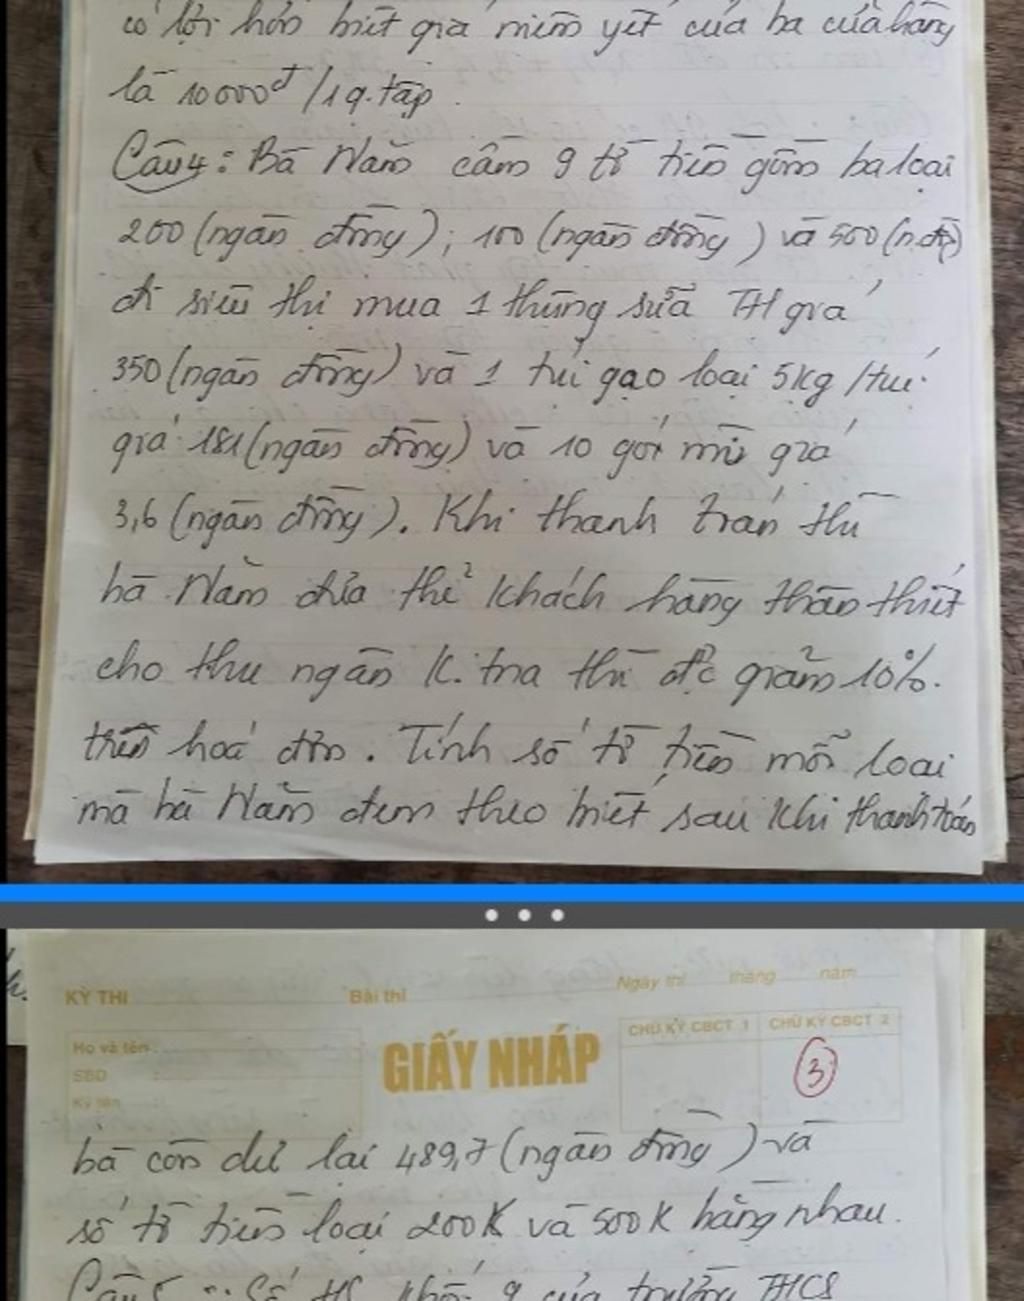 có lợi hơn biết giá niêm yết của ba cửa hàng
là 10000đ/1q.tập.
Câu 4: Bà Năm cầm 9 tờ tiền gồm ba loại
200 (ngàn đồng); 100 (ngàn đồng) và 500 (n.đồ)
đi siêu thị mua 1 thùng sữa TH giá
350 (ngàn đồng) và 1 túi gạo loại 5kg/túi
giá 181 (ngàn đồng) và 10 gói mì giá
3,6 (ngàn đồng). Khi thanh toán thì
bà Năm đưa thẻ khách hàng thân thiết
cho thu ngân K.tra thì đc giảm 10%.
trên hoá đơn. Tính số tờ tiền mỗi loại
mà bà Năm đem theo biết sau khi thanh toán
KỲ THI
Bài thi
Ngày thi tháng năm
Họ và tên:
SBD :
Ký tên :
GIẤY NHÁP
CHỮ KÝ CBCT 1
CHỮ KÝ CBCT 2
3
bà còn dư lại 489,7 (ngàn đồng) và
số tờ tiền loại 200K và 500K bằng nhau.
Câu 5: Số HS khối 9 của trường THCS